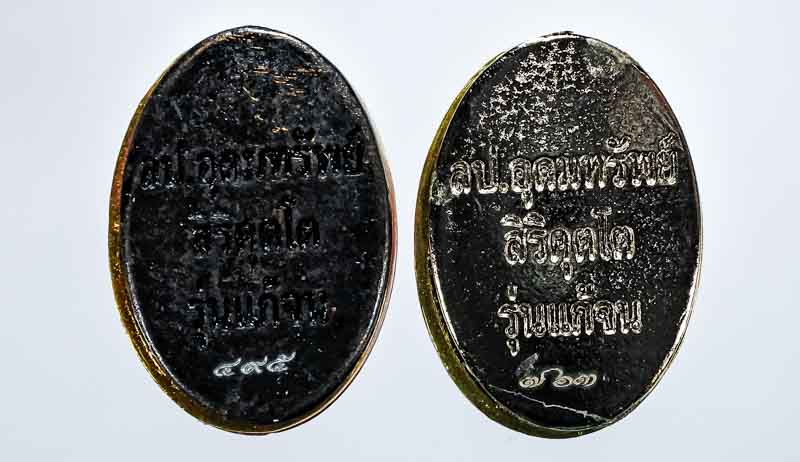 ลป.อุดมทรัพย์
สิริคุตโต
รุ่นแก้จน
๔๙๕
ลป.อุดมทรัพย์
สิริคุตโต
รุ่นแก้จน
๗๖๓